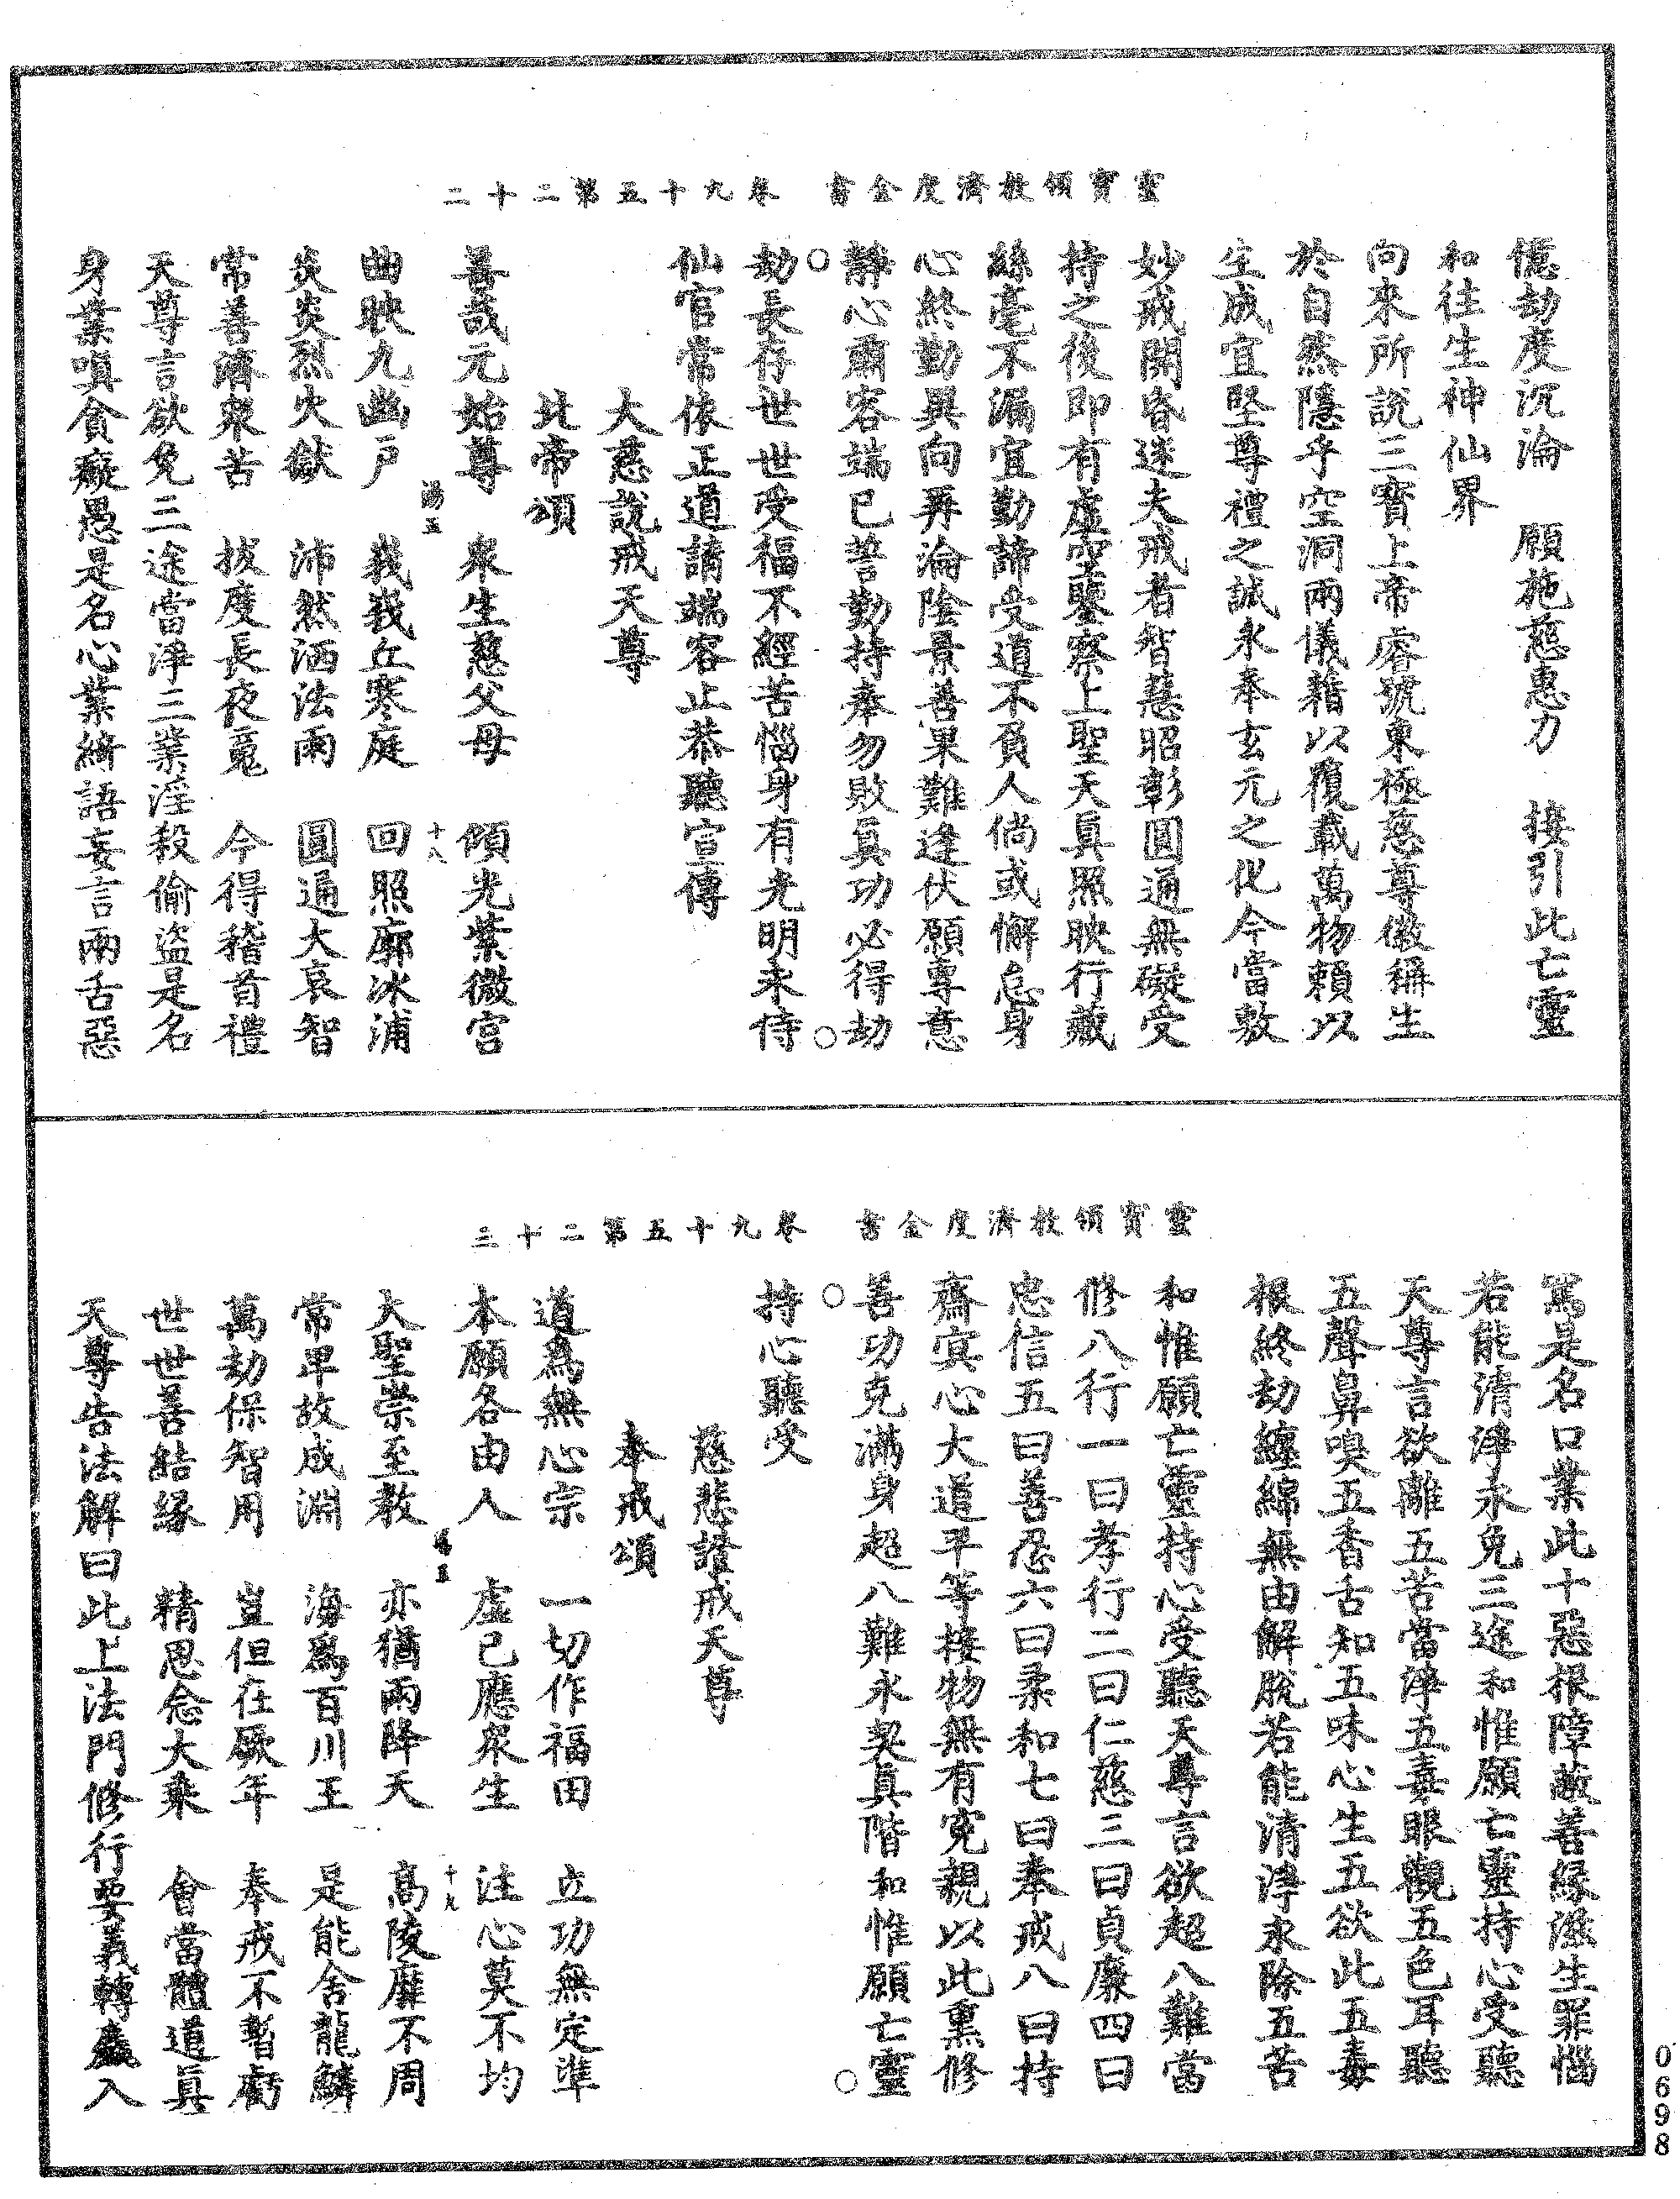 靈寶領教濟度金書 卷九十五第二十二
億劫度沉淪 願施慈惠力 接引此亡靈
和往生神仙界
向來所說三寶上帝睿號東極慈尊徽稱生
於自然隱乎空洞兩儀藉以覆載萬物賴以
生成宜堅尊禮之誠永奉玄元之化今當敷
妙戒開昏迷夫戒者智慧昭彰圓通無礙受
持之後即有虛空鑒察上聖天真照映行藏
絲毫不漏宜勤諦受道不負人倘或懈怠身
心終勤異向再淪陰景善果難逢伏願專意
○靜心肅容端已誓勤持奉勿敗真功必得劫○
劫長存世世受福不經苦惱身有光明永侍
仙官常依正道請端容止恭聽宣傳
大慈說戒天尊
北帝頌
善哉元始尊 衆生慈父母 傾光紫微宮
十八
曲映九幽戶 峩峩丘寒庭 回照廓冰浦
炎炎烈火獄 沛然洒法雨 圓通大哀智
常善濟衆苦 拔度長夜䰟 今得稽首禮
天尊言欲免三途當淨三業淫殺偷盜是名
身業嗔貪癡愚是名心業綺語妄言兩舌惡
靈寶領教濟度金書 卷九十五第二十三
罵是名口業此十惡根障蔽善緣滋生罪惱
若能清淨永免三途和惟願亡靈持心受聽
天尊言欲離五苦當淨五毒眼觀五色耳聽
五聲鼻嗅五香舌知五味心生五欲此五毒
根終劫纏綿無由解脫若能清淨永除五苦
和惟願亡靈持心受聽天尊言欲超八難當
修八行一曰孝行二曰仁慈三曰貞廉四曰
忠信五曰善忍六曰柔和七曰奉戒八曰持
齋寘心大道平等接物無有寃親以此熏修
○善功克滿身超八難永契真階和惟願亡靈○
持心聽受
慈悲證戒天尊
奉戒頌
道爲無心宗 一切作福田 立功無定準
本願各由人 虛已應衆生 注心莫不均
十九
大聖崇至教 亦猶雨降天 高陵靡不周
常卑故成淵 海爲百川王 是能舍龍鱗
萬劫保智用 豈但在厥年 奉戒不暫虧
世世善結緣 精思念大乘 會當體道真
天尊告法解曰此上法門修行要義轉入
0698